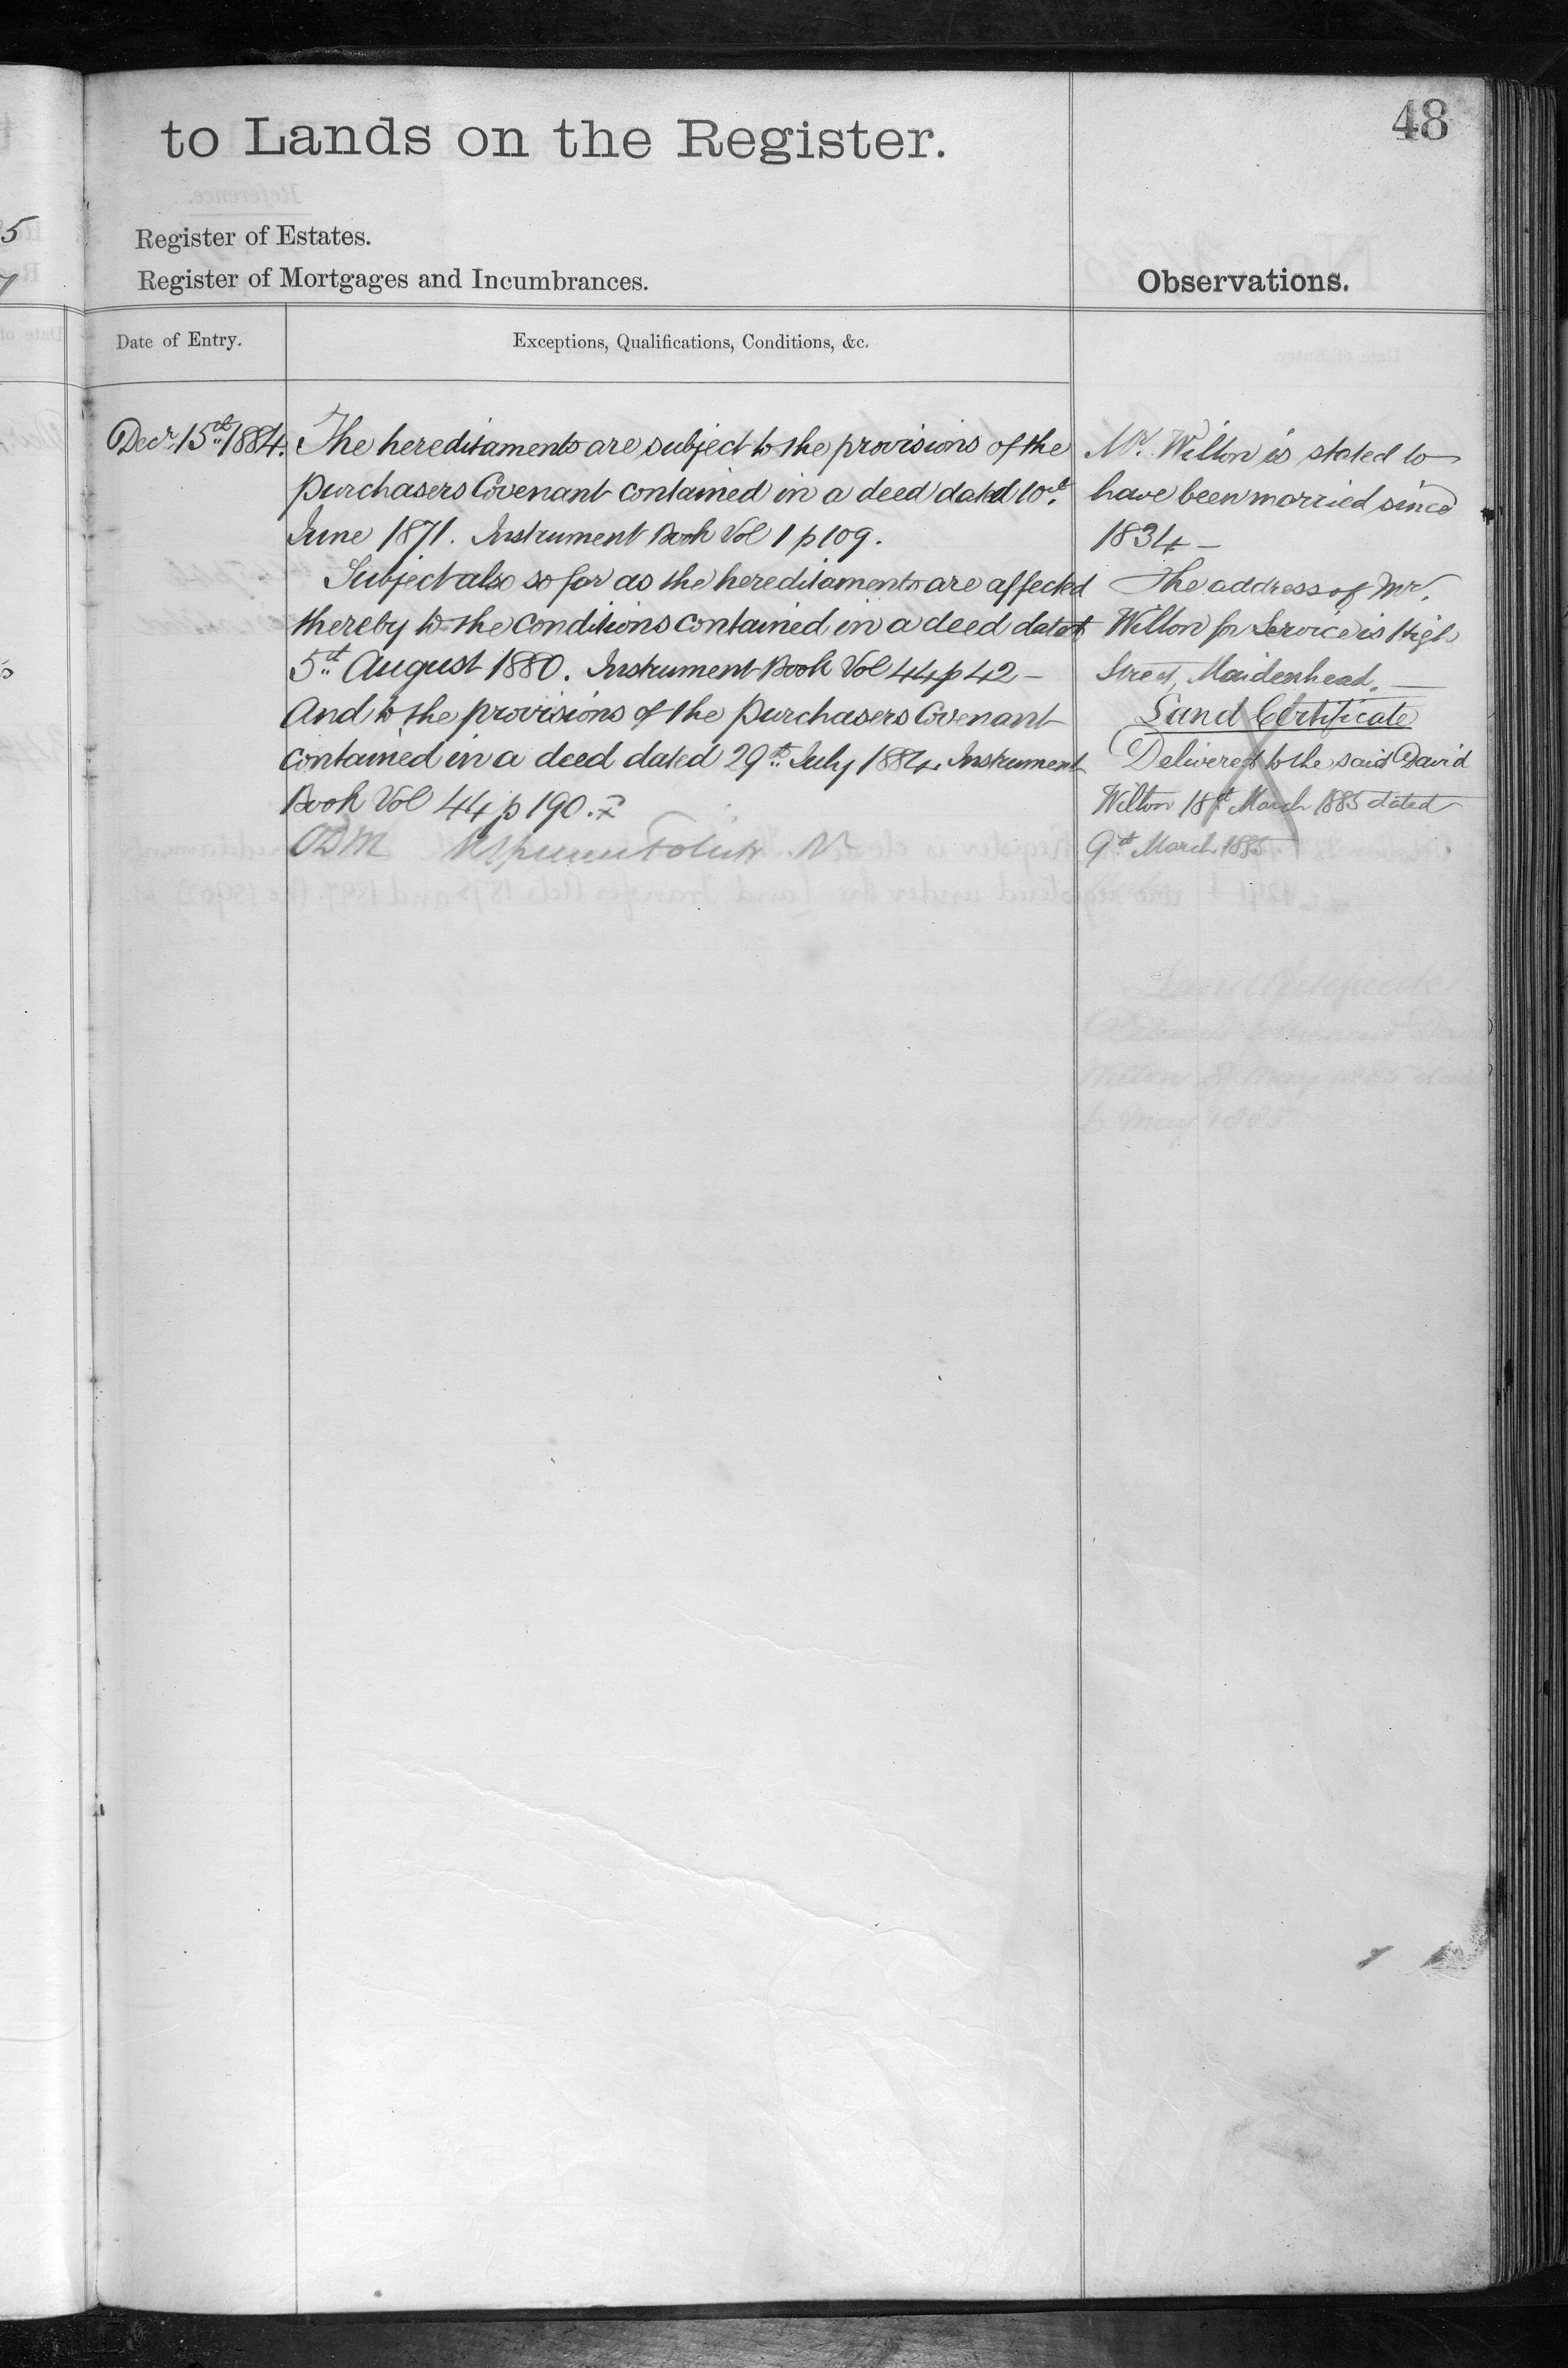 48
to Lands on the Register.
Register of Estates.
Register of Mortgages and Incumbrances.
Observations.
Date of Entry.
Exceptions, Qualifications, Conditions, &c.
Decr. 15th 1884.
The hereditaments are subject to the provisions of the
purchasers Covenant contained in a deed dated 10th
June 1871. Instrument Book Vol 1 p 109.
Subject also so far as the hereditaments are affected
thereby to the conditions contained in a deed dated
5th August 1880. Instrument Book Vol 44 p 42 -
And to the provisions of the purchasers Covenant
contained in a deed dated 29th July 1884. Instrument
Book Vol 44 p 190.
Mr. Wilton is stated to
have been married since
1834 -
The address of Mr.
Wilton for Service is High
Street, Maidenhead. -
Land Certificate
Delivered to the said David
Wilton 18th March 1885 dated
9th March 1885